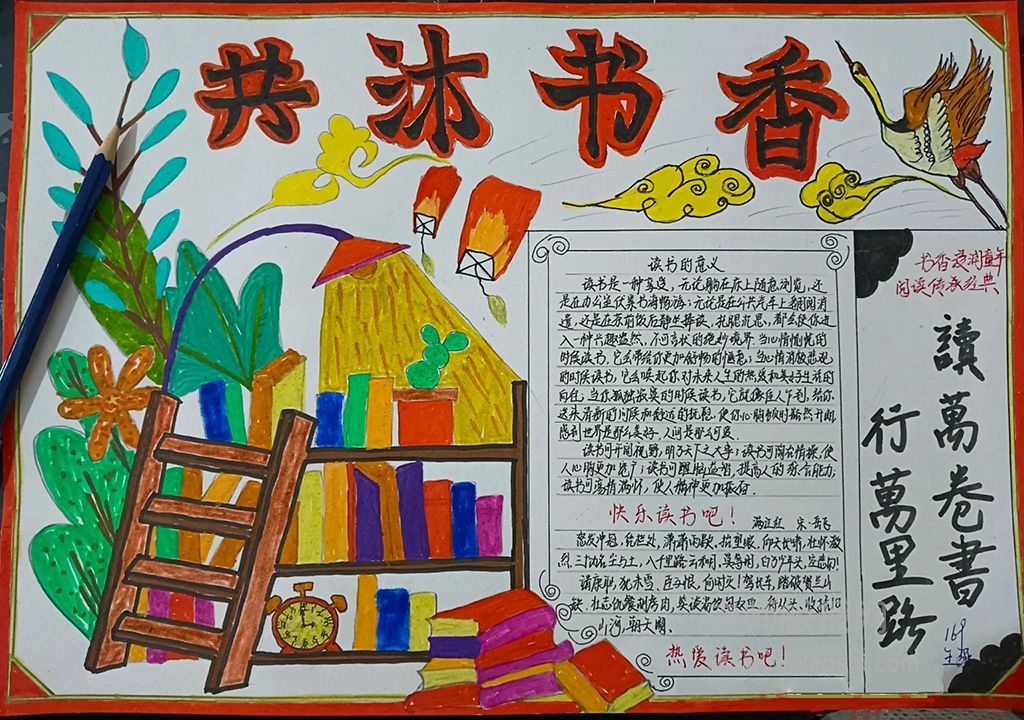 共沐书香
读书的意义
读书是一种享受，无论躺在床上随意浏览，还
是在办公室伏案书海畅游；无论是在公共汽车上翻阅消
遣，还是在茶前饭后静坐捧读，
入一种兴趣盎然，不可言状的绝妙境界。当心情愉悦的
时候读书，它会带给你更加舒畅的惬意；当心情消极悲观
的时候读书，它会唤起你对未来人生的热爱和美好生活的
向往。当你孤独寂寞的时候读书，它就像佳人乍到，给你
送来清新的问候和馥远的抚慰，使你心胸顿时豁然开朗
感到世界是那么美好，人间是那么可爱。
读书可开阔视野，明了天下之大事；读书可陶冶情操，使
人心胸更加宽广；读书可醒脑益智，提高人的综合能力；
读书可荡悟满怀，使人精神更加振奋。
快乐读书吧！
满江红 宋·岳飞
怒发冲冠，凭栏处，潇潇雨歇，抬望眼，仰天长啸，壮怀激
烈。三十功名尘与土，八千里路云和月。莫等闲，白了少年头，空悲切！
靖康耻，犹未雪，臣子恨，何时灭！驾长车，踏破贺兰山
缺，壮志饥餐胡虏肉，笑谈渴饮匈奴血。待从头、收拾旧
山河，朝天阙。
热爱读书吧！
书香浸润童年
阅读传承经典
讀萬卷書
行萬里路
169